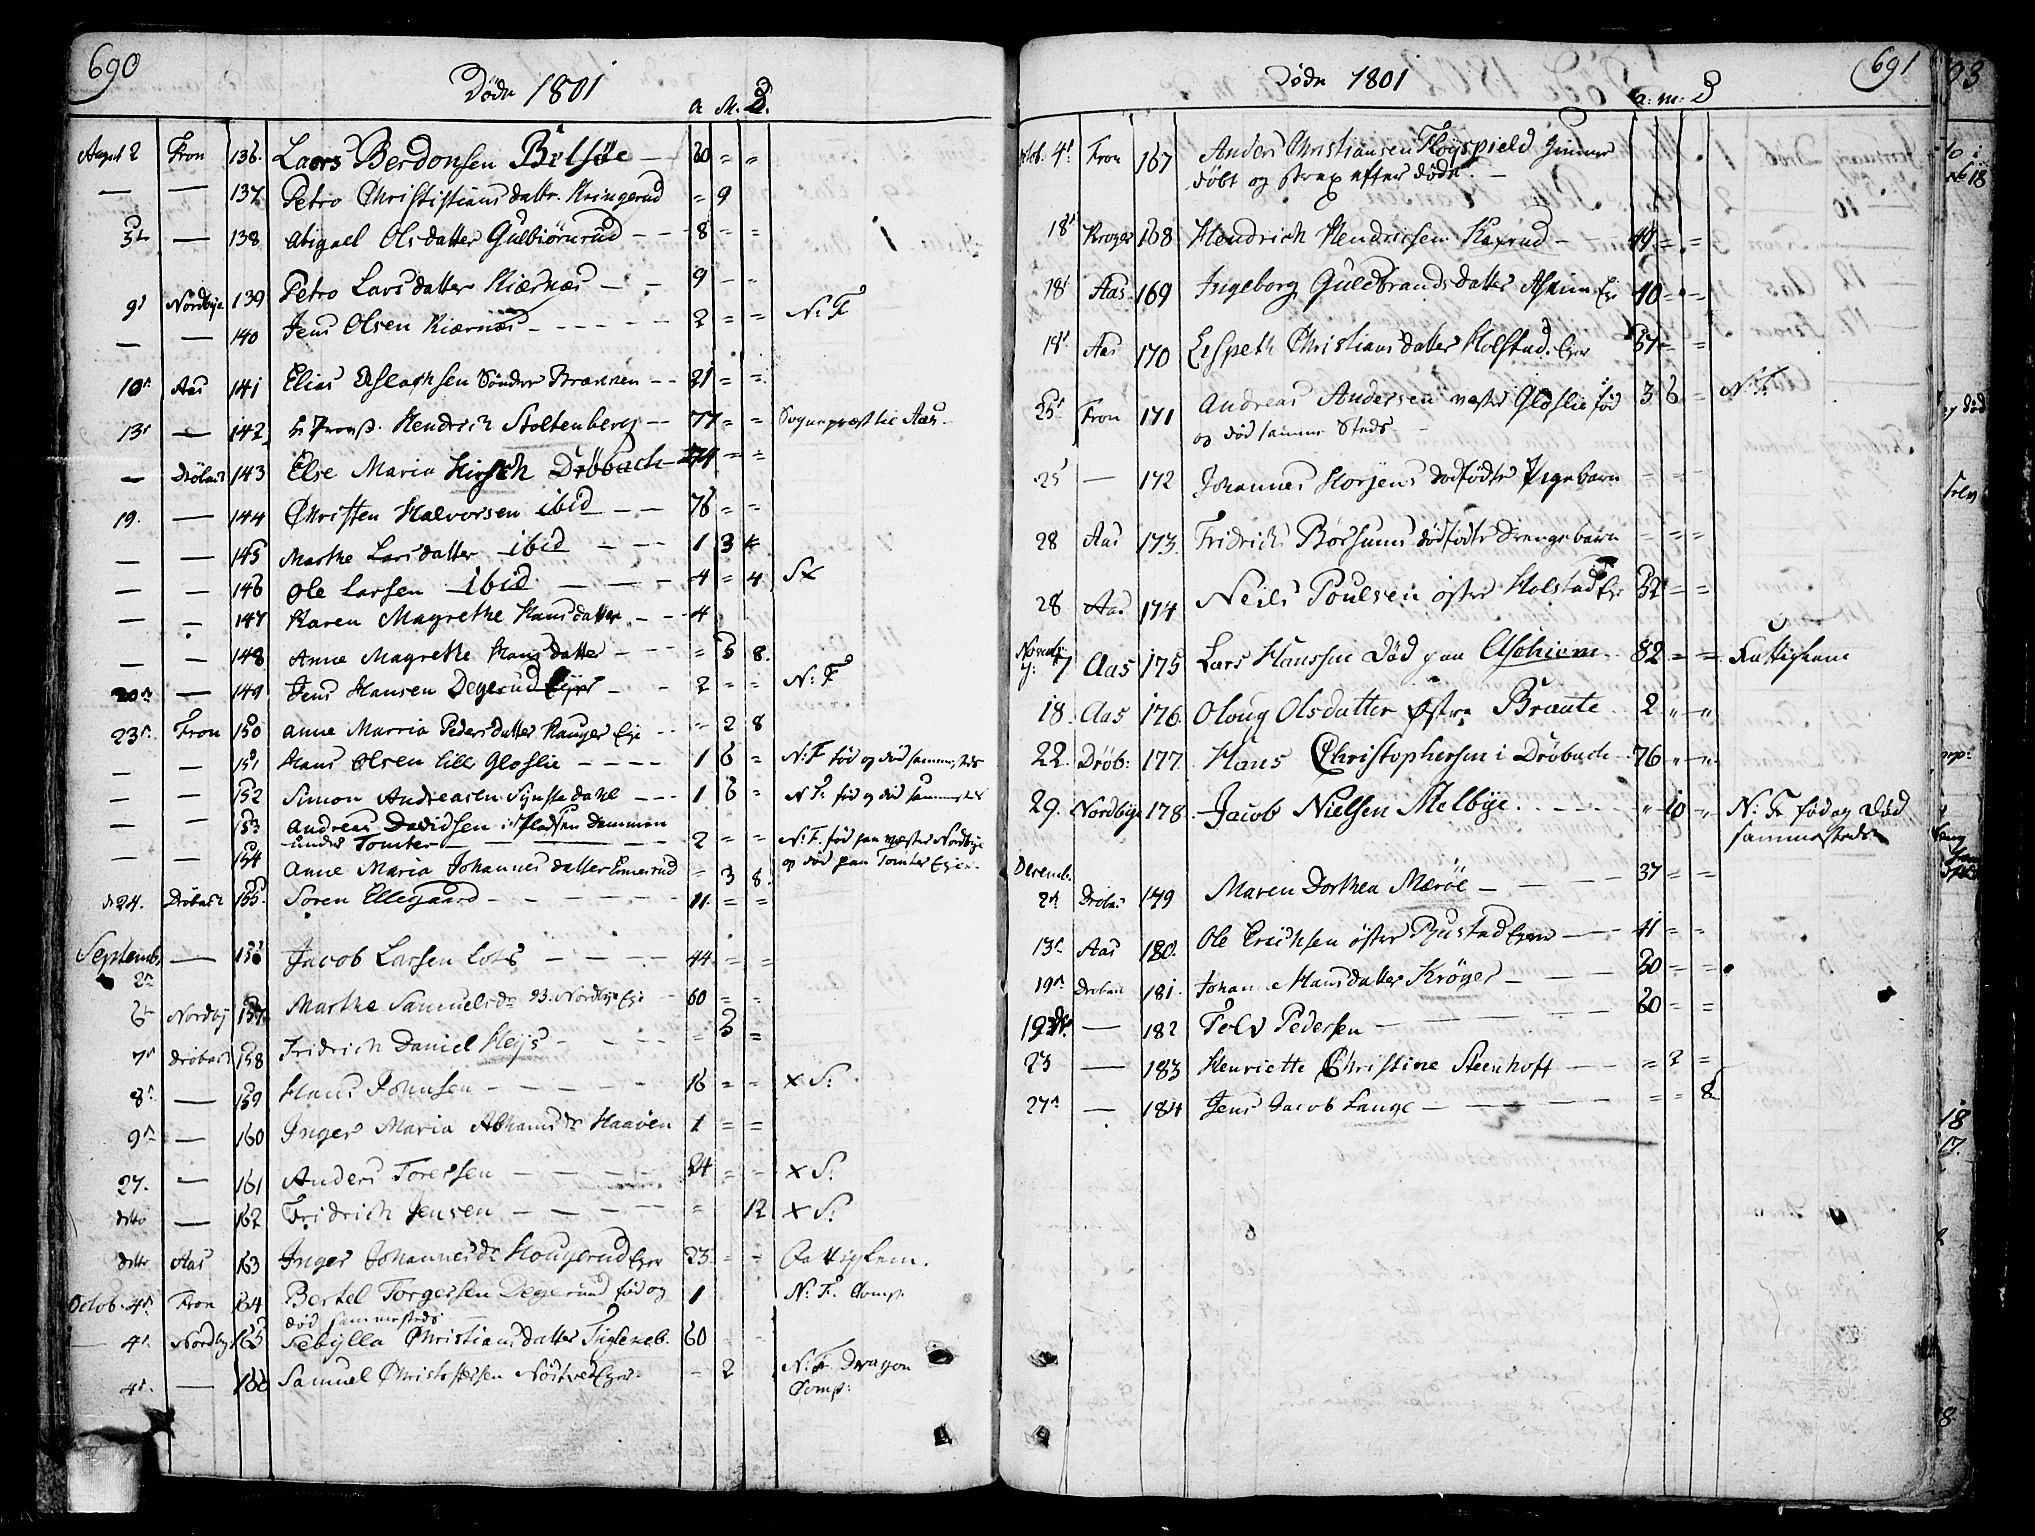 690
Döde 1801
a M. D.
August 2 Fron 136. Laers Berdonsen Bilsøe — 60 = =
— — 137 Petro Christistians dattr. Kringerud = 9
3de — 138 Abigaell Olsdatter Gulbiörnrud - - - 8 = =
9d Nordbye 139 Petro Lars datter Kiærnæs - - 9 - -
— — 140 Jens Olsen Kiærnæs - - - - - - 2 = = N: F
10de Aas 141 Elias Aslachsen Söndre Brønnen - - 21 = =
13de — 142. Hr Provst. Hendrich Stoltenberg - - 77 = = Sogneprest til Aas.
— Dröbach 143 Else Maria Hirsch Dröbach 74 = =
19. — 144 Christen Halvorsen ibid - - - 76 = =
— — 145 Marthe Larsdatter ibid - - - 1 3 4
— — 146 Ole Larsen ibid - - - - 4 = 4 S
— — 147 Karen Magrethe Hansdatter - - 4
— — 148 Anne Magrethe Hans datter - - - = 5 8.
20de — 149 Jens Hansen Degerud Ejer - - 2 = = N: F
23de Fron 150 Anne Marria Pedersdatter Hauger Eje - - = 2 8
— — 151 Hans Olsen Lille Gloslie - - - - 1 6 = N: F född og död sammesteds
— — 152 Simon Andreasen Synstedahl - - - 1 6 = N F: född og död sammesteds
— — 153 Andreas Davidsen i Pladsen Dammen
under Tomter — 2 = = N: F. född paa vester Nordbye
og död paa Tomter Eje.
— — 154 Anne Maria Johannes datter Ernesrud = 3 8.
d 24. Dröbach 155. Sören Ellegaard - - - - - - 11. = =
Septemb.
2de — 156 Jacob Larsen Lots - - - - - 44 = =
6te Nordby 157. Marthe Samuelsdr. Nordbye Eje - 60 = =
7de Dröbach 158 Fridrich Daniel Heys - - - - = 3 =
8de — 159 Hans Johnsen - - - - - 16 = = × S:
9de — 160 Inger Maria Abhams dr Haaven 1 = =
27. — 161 Anders Torersen - - - - - 24 = = × S.
ditto — 162 Fridrich Jensen - - - - - = 12 × S:
ditto Aas 163 Inger Johannesdr Hougerud Ejer 23 = = Fattiglem.
Octob. 4de Fron 164 Bertel Torgersen Degerud född og
död sammesteds 1 N: F. Comp
— 4de Nordbye 165 Sebylla Christians datter Tiglened. 60 - -
4de. — 166 Samuel Christophersen Nöstvet Ejer = 2 N: F. Dragon
Comp:
691
Döde 1801
a: m: D
Octob. 4de Fron 167 Anders Christiansen Högspield hiemme
döbt og strax efter döde. —
18de Kroger 168 Hendrich Hendrichsen Kaxrud - 49 = =
18de Aas 169 Ingeborg Guldbrands datter Askim Eje 40 = =
18de Aas 170 Elspeth Christians datter Holstad. Ejer 57 = =
25de Fron 171 Andreas Andersen vester Gloslie född
og död samme Steds - 3 6 = N: F.
25 — 172 Johannes Horjens dødfødte Pigebarn = = =
28 Aas 173. Fridrich Börsums dödfödte Drengebarn = = =
28 Aas 174 Neils Poulsen öster Holstad Eje 32 = =
Novemb.
7 Aas 175 Lars Hanssen Död paa Aschiem 82 = = Fattiglem
18 Aas 176. Oloug Olsdatter Østre Braate 2 " "
22. Dröb: 177. Hans Christophersen i Dröbach 76 " "
29. Nordbye 178. Jacob Nielsen Melbye . - - - " 10 " N: F. fød og Död
sammesteds
Decemb.
2de Dröbac 179 Maren Dorthea Mærøe - - - - 37 = =
13de Aas 180. Ole Erichsen öster Rustad Ejere - - 41 = =
19de Dröbac 181. Johanne Hansdatter Kröger - - - 30 = =
19de — 182 Tolv Pedersen - - - - - 60 = =
23 — 183 Henriette Christine Steenhoff - - = 2 =
27de — 184 Jens Jacob Lange - - - - - = = 8